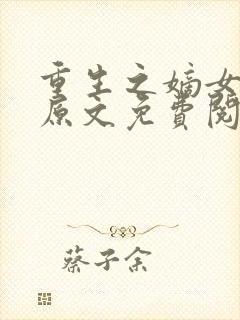 重生之嫡女
原文免費閱
蔡子余